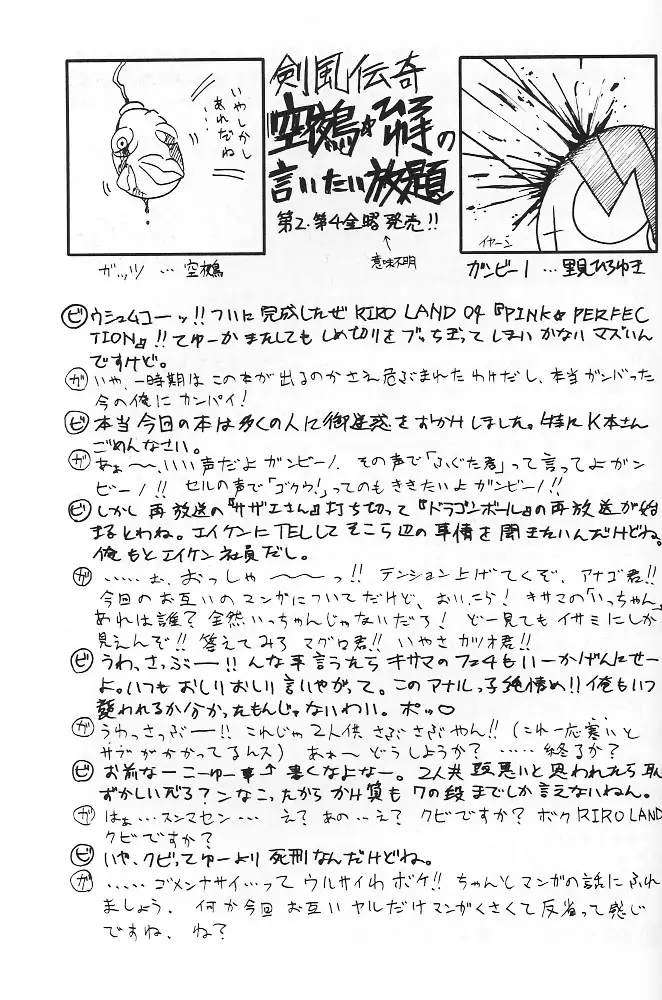 いやしかし
あれだね
ガッツ …空鵺
剣風伝奇
空鵺☆ひろゆきの
言いたい放題
第2.第4金曜発売!!
意味不明
イヤーン
ガンビーノ…里見ひろゆき
ビ ウシュムコーッ!!ついに完成したぜRIRO LAND 04『PINK☆PERFEC
TION』!!てゆーかまたしてもしめ切りをブッちぎってしまいかないマズいん
ですけど。
ガ いや、一時期はこの本が出るのかさえ危ぶまれたわけだし、本当ガンバった
今の俺にカンパイ!
ビ 本当今回の本は多くの人に御迷惑をおかけしました。特にK本さん
ごめんなさい。
ガ あぁ〜〜、いい声だよガンビーノ. その声で「ふぐた君」って言ってよガン
ビーノ!! セルの声で「ゴクウ!」ってのもききたいよガンビーノ!!
ビ しかし再放送の『サザエさん』打ち切って『ドラゴンボール』の再放送が始
まるとわね。エイケンにTELしてそこら辺の事情を聞きたいんだけどね。
俺もとエイケン社員だし。
ガ ……ぉ、おっしゃ〜〜〜っ!! テンション上げてくぞ、アナゴ君!!
今回のお互いのマンガについてだけど、おい、こら! キサマの「いっちゃん」
あれは誰? 全然いっちゃんじゃないだろ! どー見てもイサミにしか
見えんぞ!! 答えてみろマグロ君!! いやさカツオ君!!
ビ うわっ、さっぶーー!! んな事言うたらキサマのフェ4もいーかげんにせー
よ。いつもおしりおしり言いやがって。このアナルっ子純情め!!俺もいつ
襲われるか分かったもんじゃないわい。ポッ○
ガ うわっさっぶー!! これじゃ2人供さぶさぶやん!! (これ一応寒いと
サブがかかってるんス) あぁ〜どうしようか? ……終るか?
ビ お前なーこーゆー事↑書くなよなー。2人共頭悪いと思われたら恥
ずかしいだろ?ンなこったからかけ算も7の段までしか言えないねん。
ガ はぁ…スンマセン… え? あの…え? クビですか? ボクRIRO LAND
クビですか?
ビ いや、クビってゆーより死刑なんだけどね。
ガ ……ゴメンナサイ…って ウルサイわボケ!! ちゃんとマンガの話にふれ
ましょう. 何か今回お互いヤルだけマンガくさくて反省って感じ
ですね、ね?